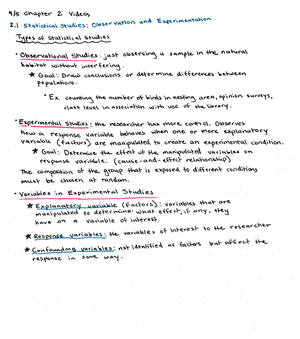 4/5 Chapter 2 Videos
2.1 Statistical Studies: Observation and Experimentation
Types of Statistical Studies
• Observational Studies: just observing a sample in the natural
habitat without interfering.
★ Goal: Draw conclusions or determine differences between
populations.
* Ex. counting the number of birds in nesting area, opinion surveys,
class level in association with use of the library.
• Experimental Studies: the researcher has more control. Observes
how a response variable behaves when one or more explanatory
variable (factors) are manipulated to create an experimental condition.
★ Goal: Determine the effect of the manipulated variables on
response variable. (cause-and-effect relationship)
The composition of the group that is exposed to different conditions
must be chosen at random.
• Variables in Experimental Studies
★ Explanatory variable (factors): variables that are
manipulated to determine what effect, if any, they
have on a variable of interest.
★ Response variables: the variables of interest to the researcher
★ Confounding variables: not identified as factors but affect the
response in some way.